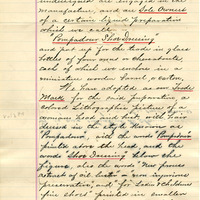 undersigned, are engaged in the
manufacture, and are Sole Owners
of a certain liquid preparation
which we call
"Pompadour Shoe Dressing"
and put up for the trade in glass
bottles of four and
each of which we enclose in a
miniature wooden barrel
We have adopted as our Trade
Mark for the said preparation a
colored Lithographic picture of a
woman's head and bust, with hair
dressed in the style known as
Pompadour, with the words Pompadour
printed above the head, and the
words Shoe Dressing below the
figure, also the words
of oil
preservative, and for Ladies & Childrens
fine shoes printed in smaller